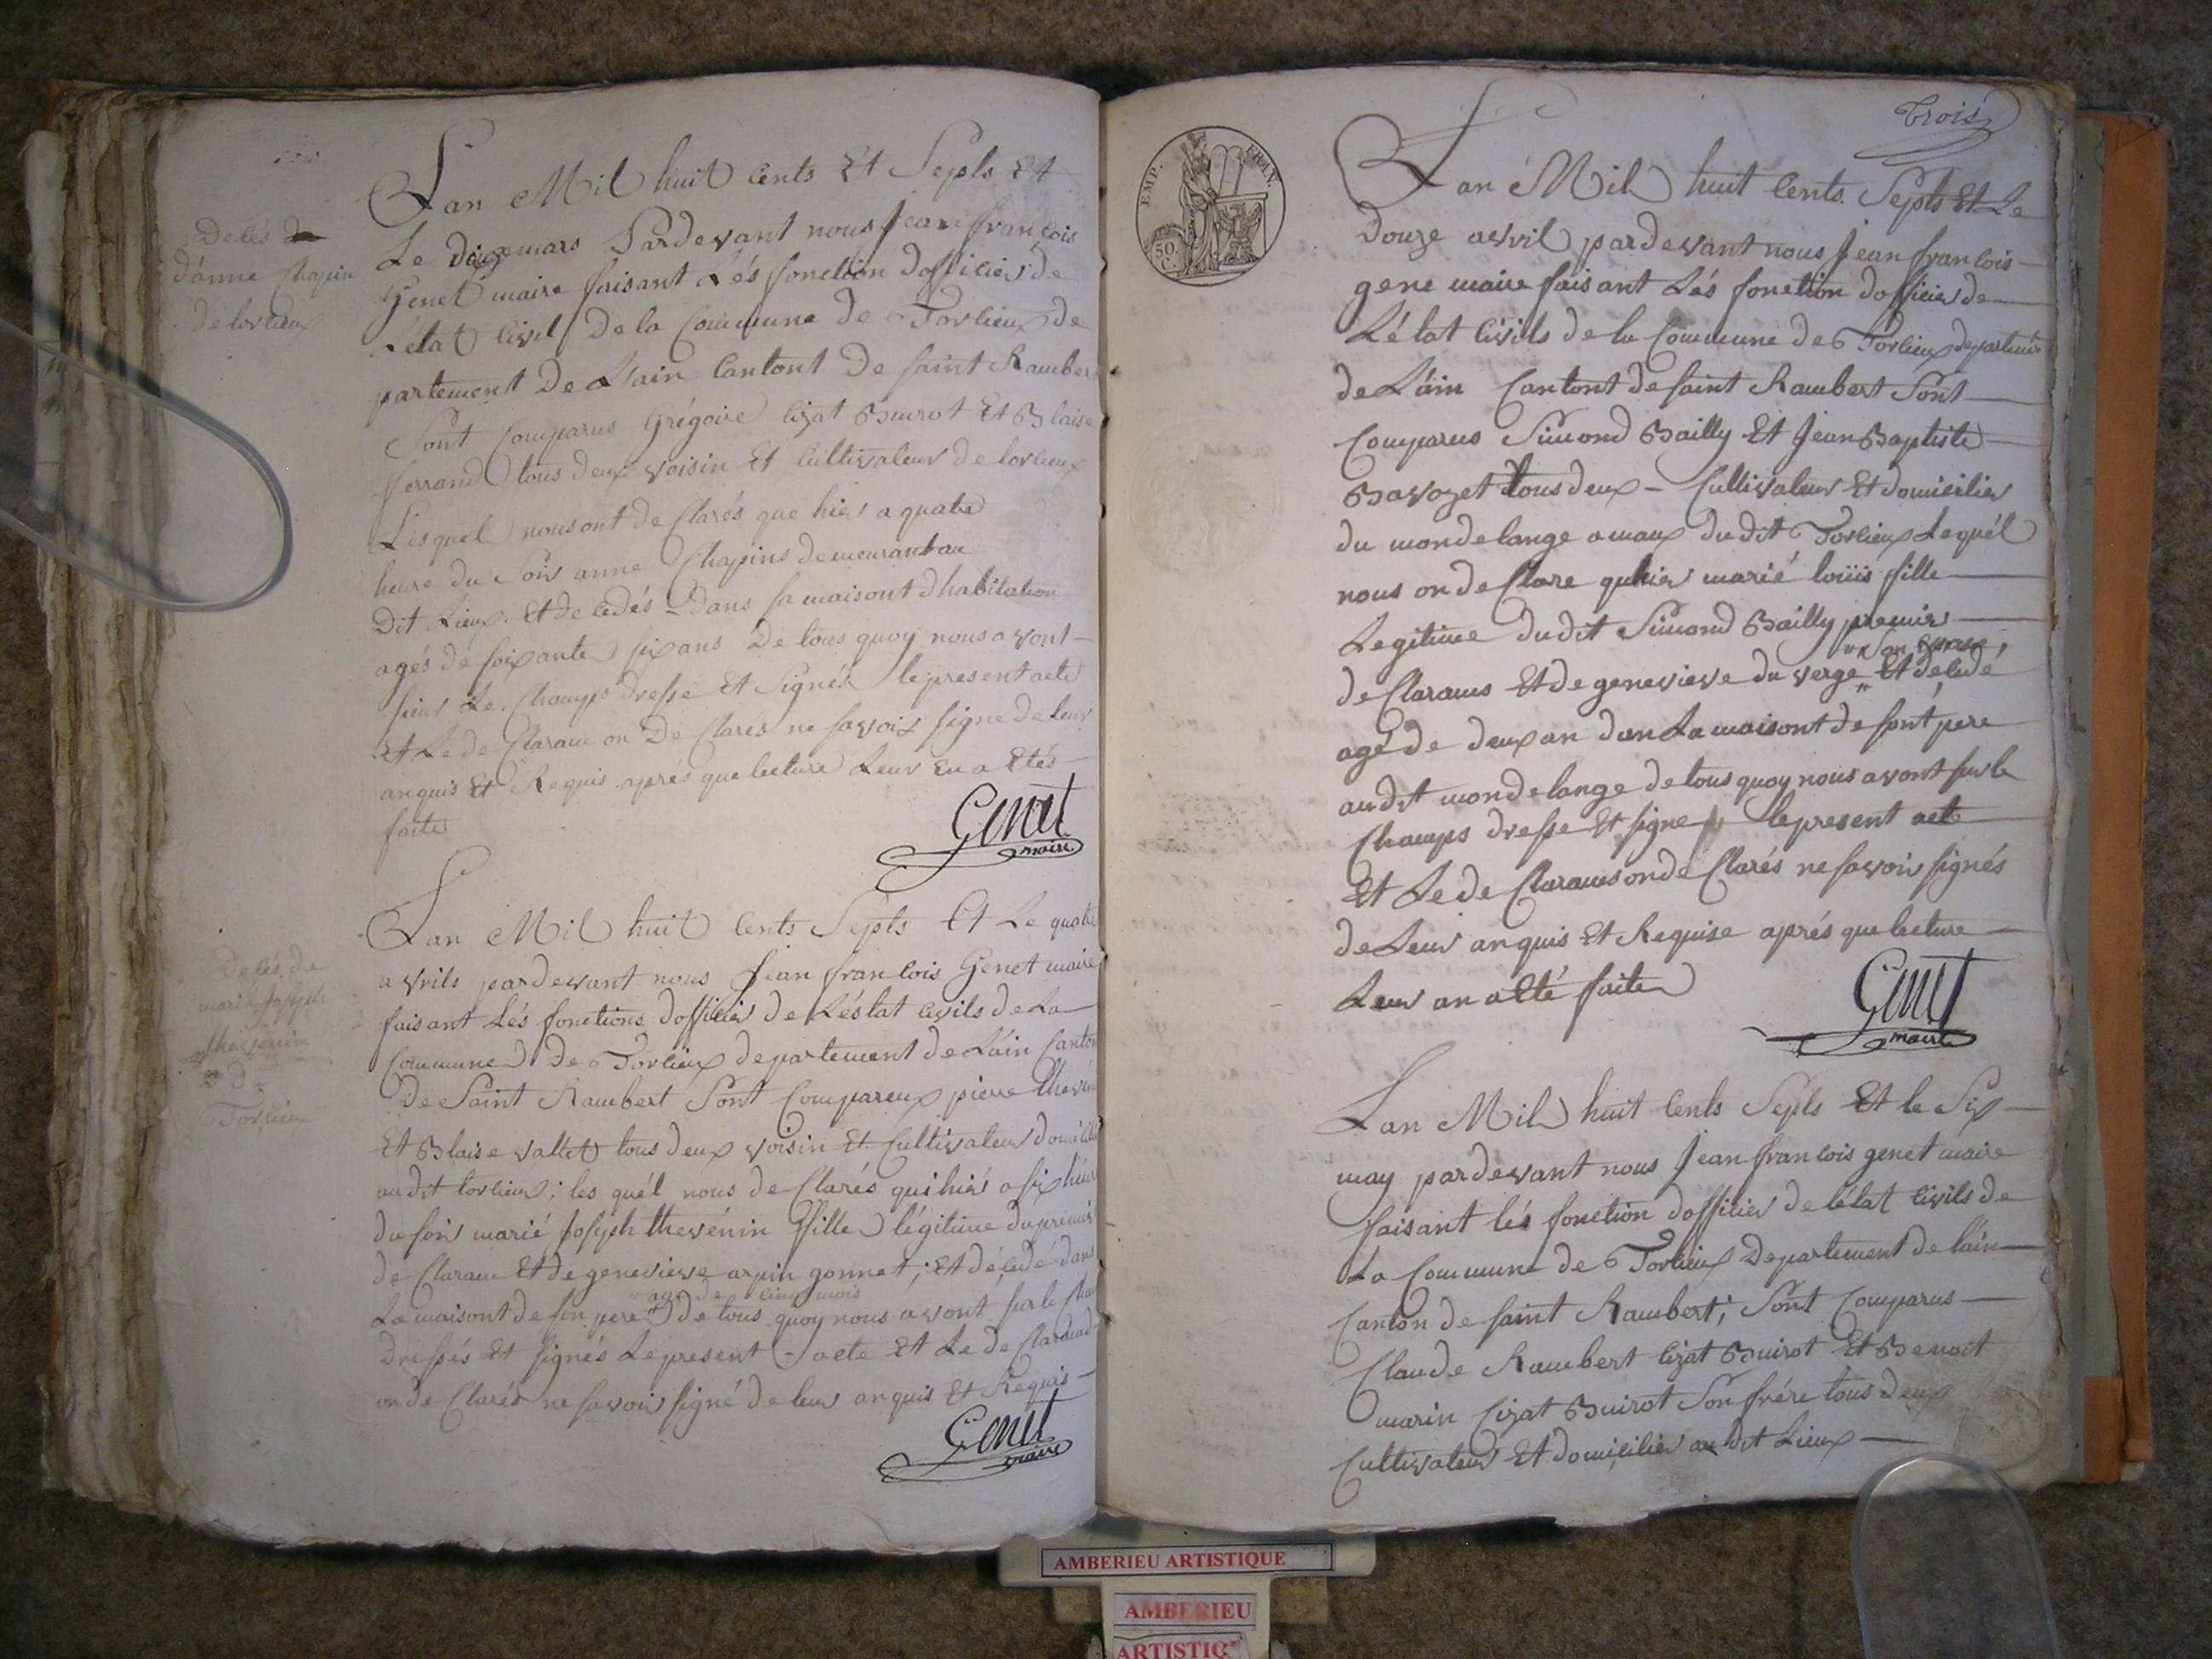 Decés de
d'anne Chapin
de torlieux
Lan Mil huit Cents Et Septs Et
Le mars Pardevant nous Jean francois
Genet maire faisant Lés fonction dofficier de
Létat Civil De la Commune de Torlieux de
partement De Lain Cantont De saint Ramber
Sont Comparus Grégoire Cizat Buirot Et Blaise
ferrand tous deux voisin Et Cultivateur de torlieux
Lesquel nous ont de Clarés que hier a quatre
heure du Soir anne Chapins demeurant au
Dit Lieux Et decedés dans sa maisont dhabitation
agés de soixante six ans De tous quoy nous avont
sieur Le Champs dresse Et Signés le present acte
Et Le de Clarant on De Clarés ne savoir signe de leur
anquis Et Requis aprés que lecture Leur En a Etés
faite
Genet
maire
Decés de
marie Joseph
thevenin
de
Torlieux
Lan Mil huit Cents Septs Et Le quatre
avrils pardevant nous Jean francois Genet maire
faisant Lés fonctions dofficier de Léstat Civils de La
Commune De Torlieux departement de Láin Canton
De Saint Rambert Sont Compareux pierre thevénin
Et Blaise vallet tous deux voisin Et Cultivateur
au dit torlieux; les quél nous de Clarés qui hiér a six heur
du soir marié Joseph thevénin fille légitime du premier
de Clarant Et de genevieve arpin gonnet; Et décedé dans
age de cinq mois
La maisont de son pere de tous quoy nous avont sur le Cha
dressés Et signés Le present acte Et Le de Clarant
on de Clarés ne savoir signé de leur anquis Et Requis
Genet
maire
Trois
EMP. FRAN.
50 C.
Lan Mil huit Cents Septs Et Le
Douze avril pardevant nous Jean francois
gene maire faisant Lés fonction dofficier de
Létat Civils de la Commune de Torlieux departement
de Láin Cantont de saint Rambert Sont
Comparus Simond Bailly Et Jean Baptiste
Bavozet tous deux Cultivateur Et domicilier
du mondelange amaux du dit Torlieux Lequél
nous on de Clare quhier marié loüis fille
Legitime du dit Simond Bailly premier
de Clarants Et de genevieve du verge Et décedé
agé de deux an dan La maisont de sont pere
au dit mondelange de tous quoy nous avont sur le
Champs dresse Et signe le present acte
Et Le de Clarants on de Clarés ne savoir signés
de Leur anquis Et Requise aprés que lecture
Leur an a Eté faite
Genet
maire
Lan Mil huit Cents Septs Et le Six
may pardevant nous Jean francois genet maire
faisant lés fonction dofficier de létat Civils de
La Commune de Torlieux Departement de láin
Canton de saint Rambert; Sont Comparus
Claude Rambert Cizat Buirot Et Benoit
marin Cizat Buirot Son frére tous deux
Cultivateur Et domicilier au dit Lieux
AMBERIEU ARTISTIQUE
AMBERIEU
ARTISTIQ